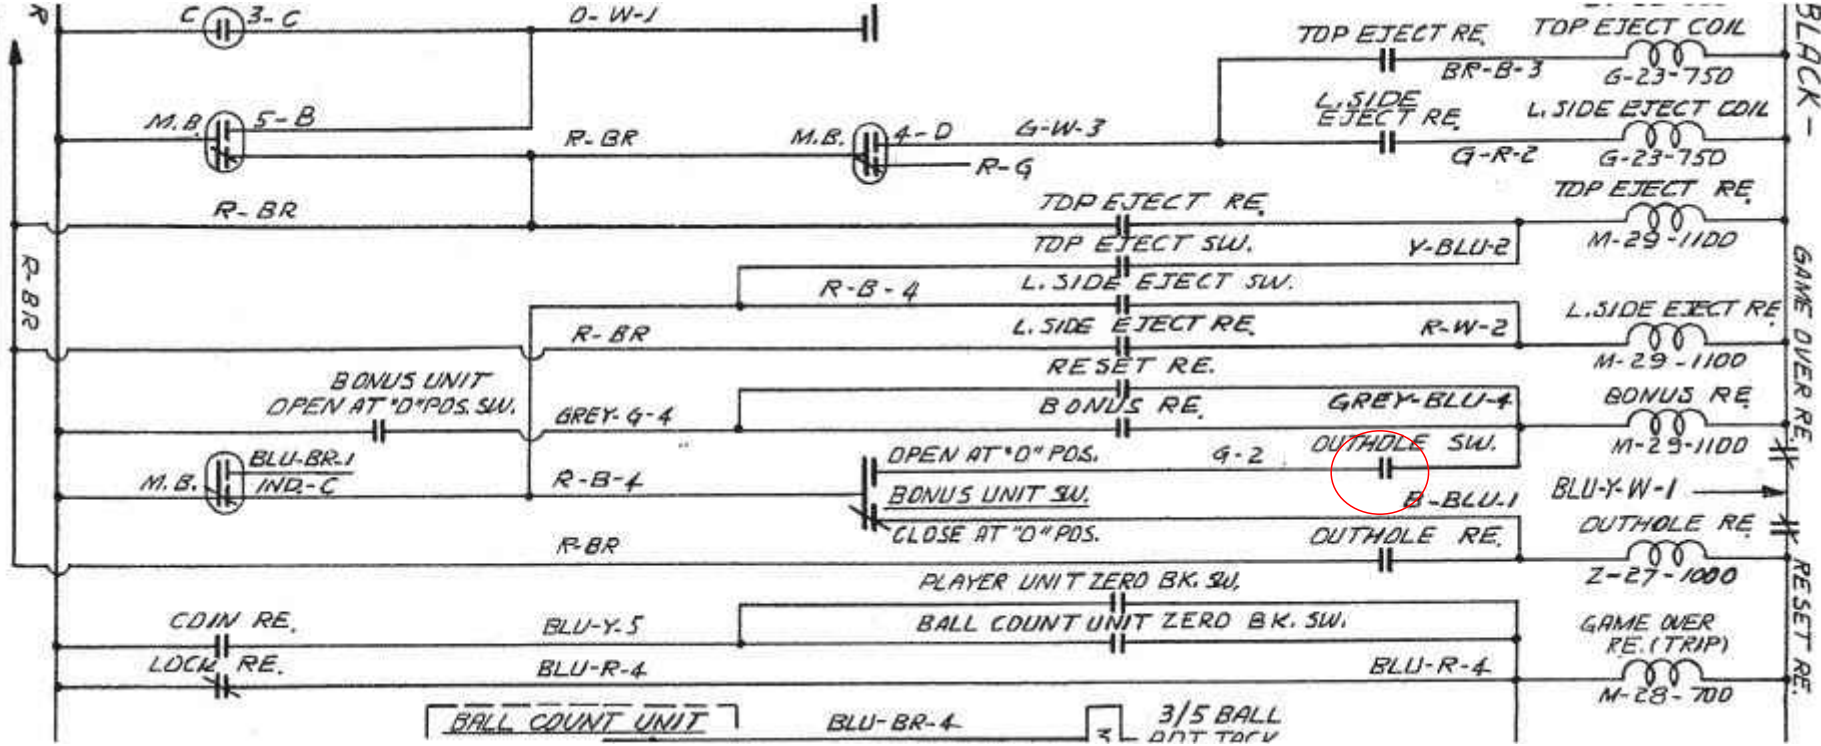 R
C 3-C O-W-1
TOP EJECT RE. TOP EJECT COIL
BR-B-3 G-23-750
BLACK-
M.B. 5-B R-BR M.B. 4-D G-W-3
R-G
L.SIDE
EJECT RE. L.SIDE EJECT COIL
G-R-2 G-23-750
R-BR TOP EJECT RE. TOP EJECT RE.
M-29-1100
TOP EJECT SW. Y-BLU-2
R-BR
R-B-4 L. SIDE EJECT SW.
R-BR L. SIDE EJECT RE. R-W-2 L.SIDE EJECT RE.
M-29-1100
GAME OVER RE.
RESET RE.
BONUS UNIT
OPEN AT "O" POS. SW. GREY-G-4 BONUS RE. GREY-BLU-4 BONUS RE.
M-29-1100
OPEN AT "O" POS. G-2 OUTHOLE SW.
M.B. BLU-BR-1
IND.-C R-B-4 BONUS UNIT SW. B-BLU-1 BLU-Y-W-1
CLOSE AT "O" POS.
R-BR OUTHOLE RE. OUTHOLE RE.
Z-27-1000
RESET RE.
PLAYER UNIT ZERO BK. SW.
COIN RE. BLU-Y-5 BALL COUNT UNIT ZERO BK. SW.
LOCK RE. BLU-R-4 BLU-R-4 GAME OVER
RE. (TRIP)
M-28-700
BALL COUNT UNIT BLU-BR-4 3/5 BALL